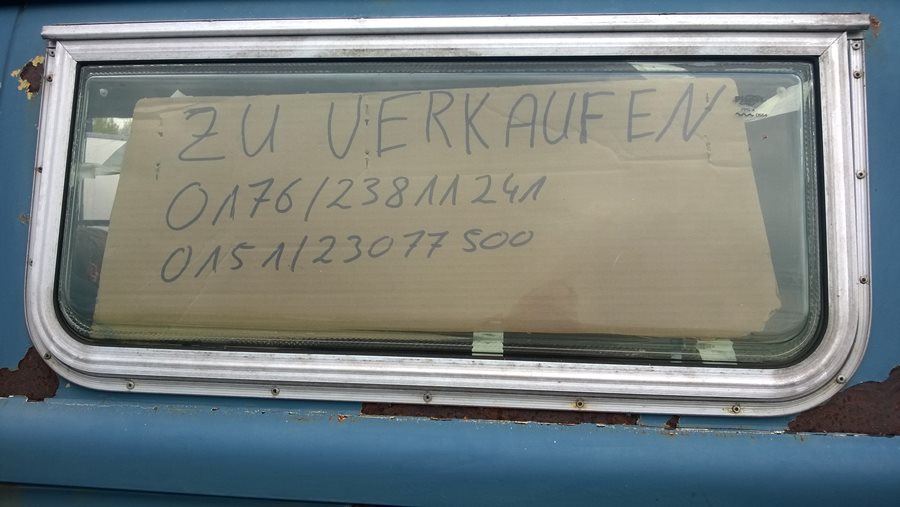 ZU VERKAUFEN
0176/23811241
0151/23077500